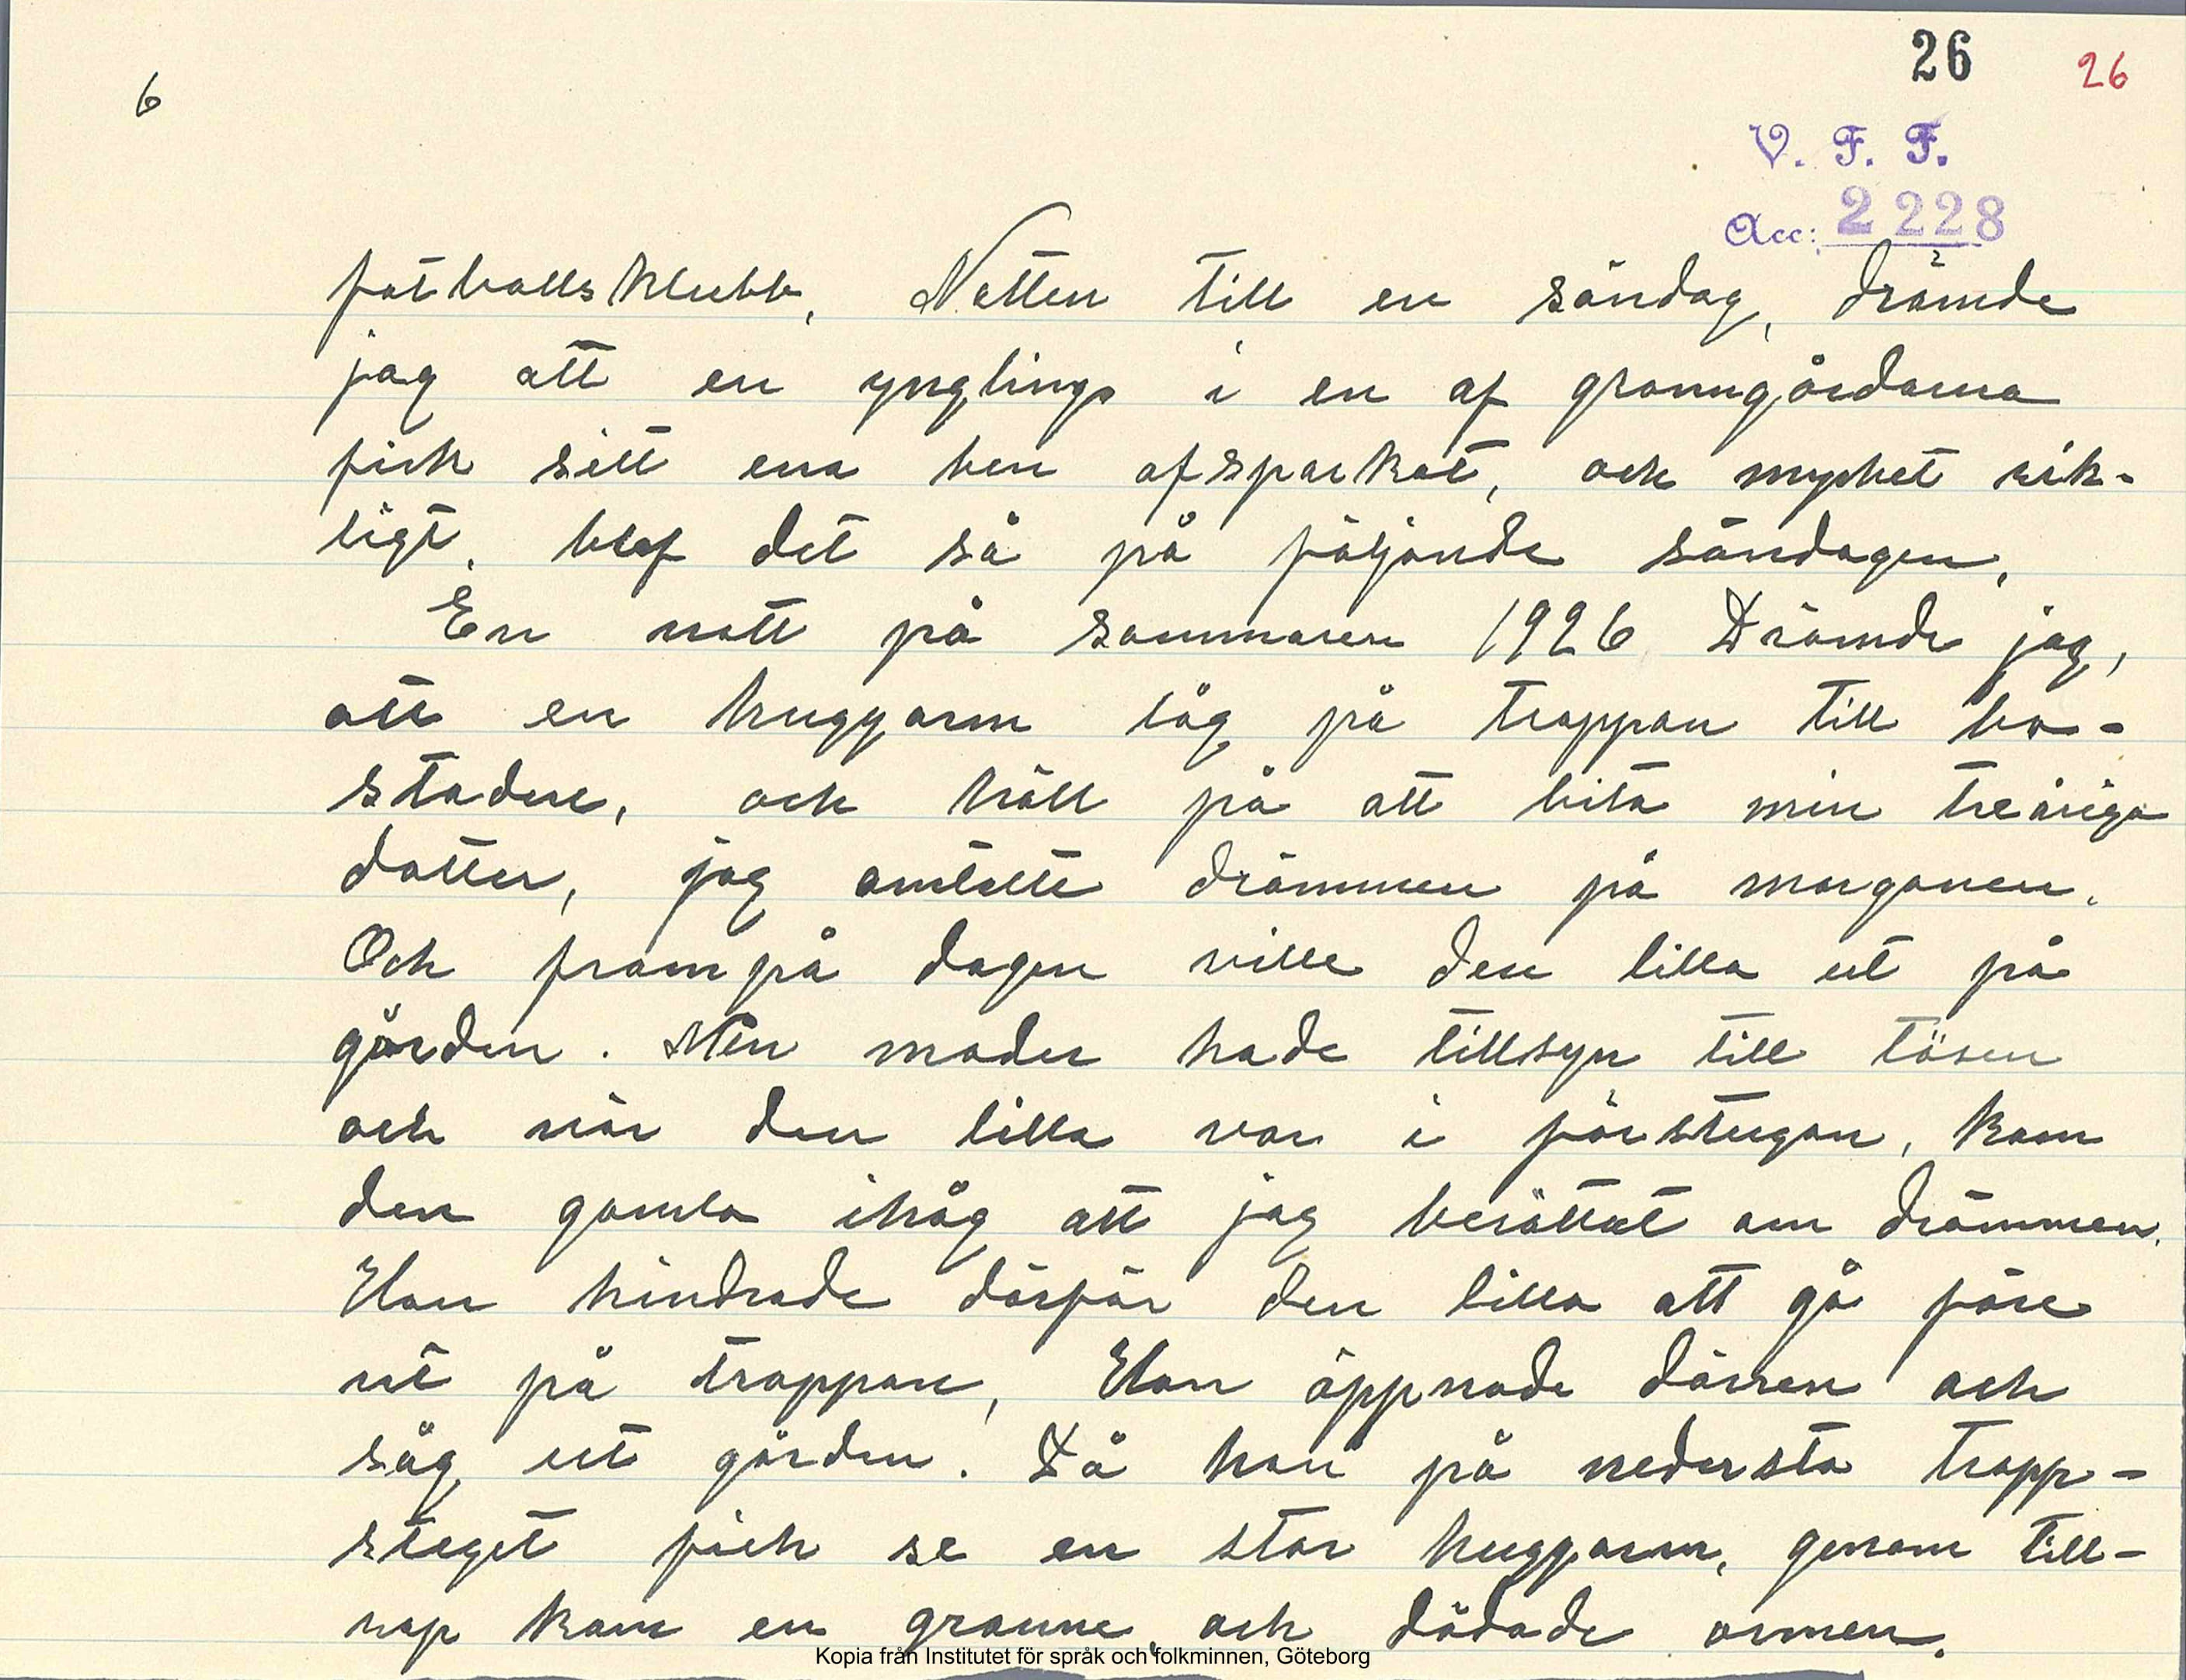 6
26 26
V. F. F.
Acc: 2228
fotbollsklubb, Natten till en söndag, drömde
jag att en yngling i en af granngårdarna
fick sitt ena ben afsparkat, och mycket rik-
tigt, blef det så på följande söndagen,
En natt på sommaren 1926 Drömde jag,
att en huggorm låg på trappan till bo-
staden, och höll på att bita min treåriga
dotter, jag omtalte drömmen på morgonen.
Och frampå dagen ville den lilla ut på
gården. Min moder hade tillsyn till tösen
och när den lilla var i förstugan, kom
den gamla ihåg att jag berättat om drömmen.
Hon hindrade därför den lilla att gå före
ut på trappan, Hon öppnade dörren och
såg ut gården. Då hon på nedersta trapp-
steget fick se en stor huggorm, genom till-
rop kom en granne och dödade ormen.
Kopia från Institutet för språk och folkminnen, Göteborg